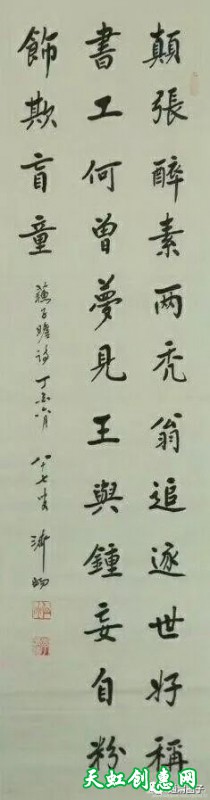 顛張醉素两禿翁追逐世好稱
書工何曾夢見王與鍾妄自粉
飾欺盲童
蘇子瞻詩丁未六月八十七叟
天虹创惠网